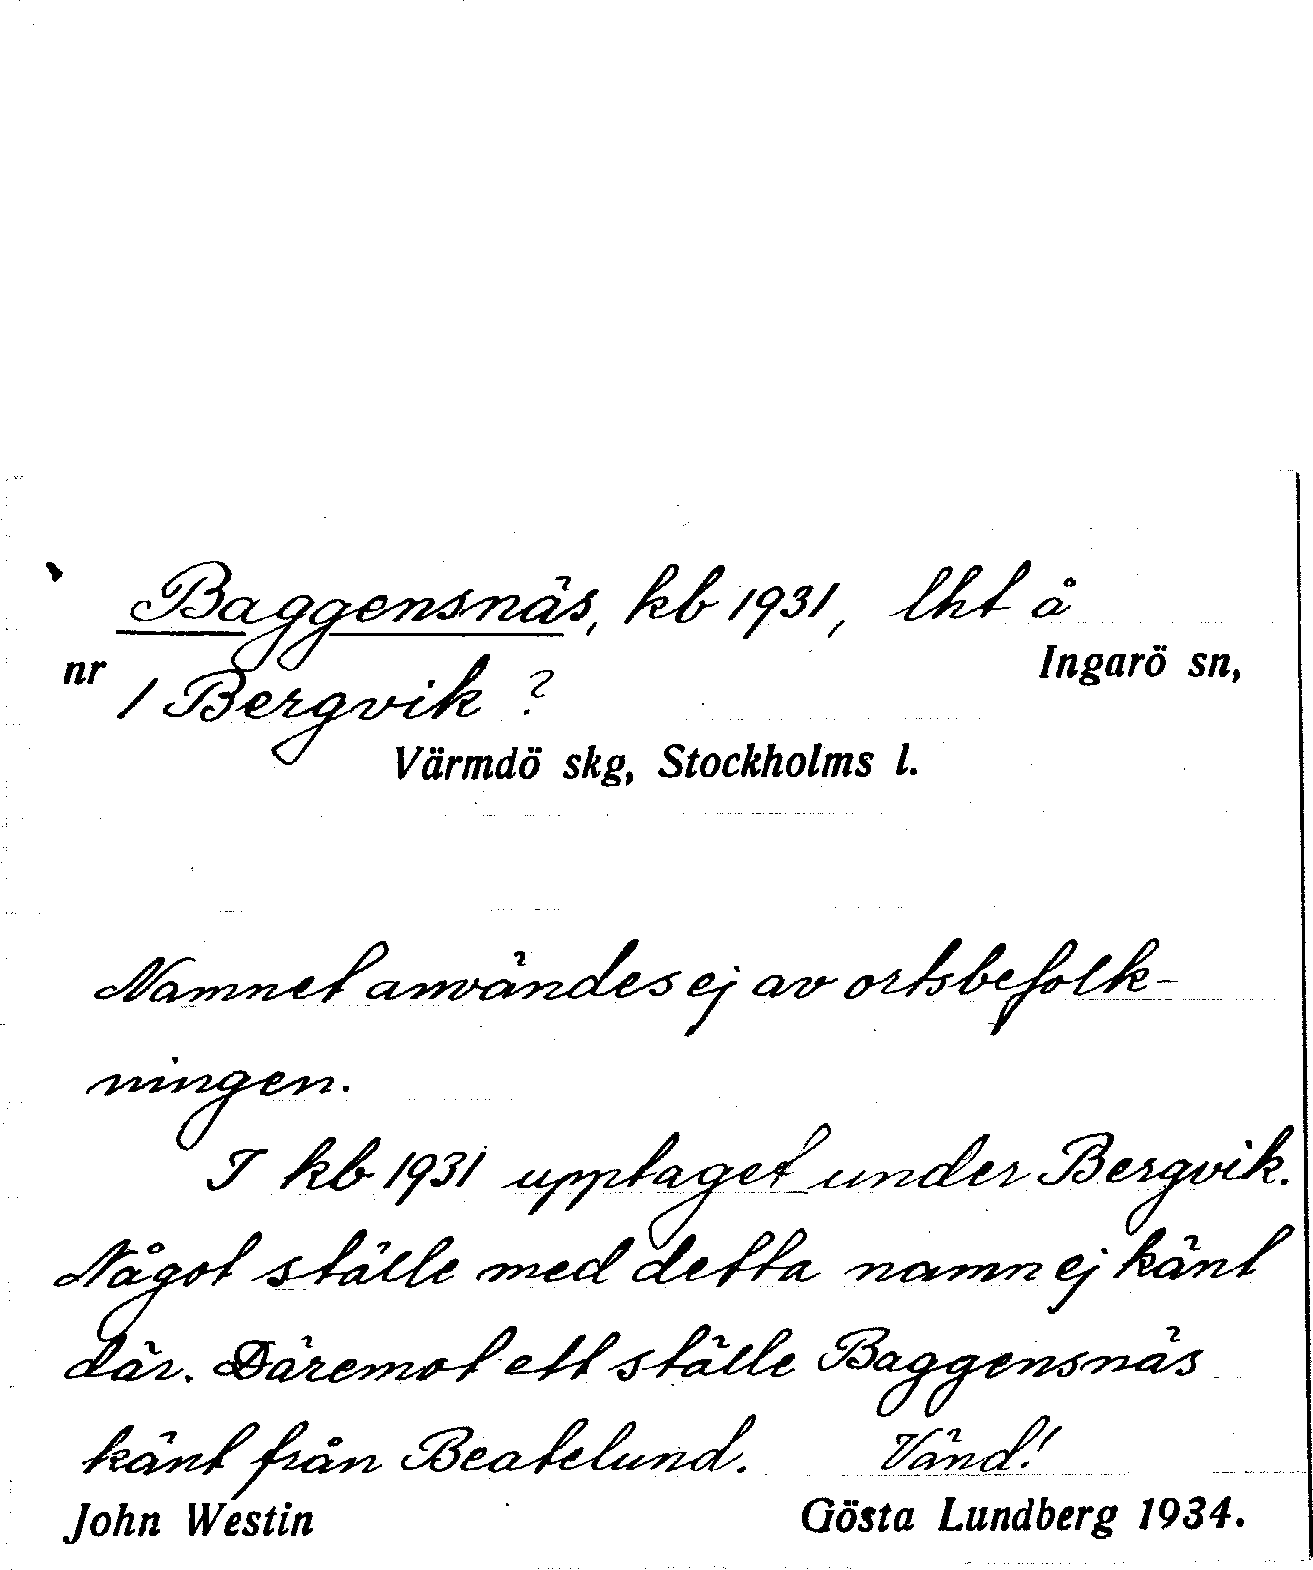 Baggensnäs, kb 1931, lht å
Ingarö sn,
nr 1 Bergvik ?
Värmdö skg, Stockholms l.
Namnet användes ej av ortsbefolk-
ningen.
I kb 1931 upptaget under Bergvik.
Något ställe med detta namn ej känt
där. Däremot ett ställe Baggensnäs
känt från Beatelund. Vänd!
John Westin Gösta Lundberg 1934.